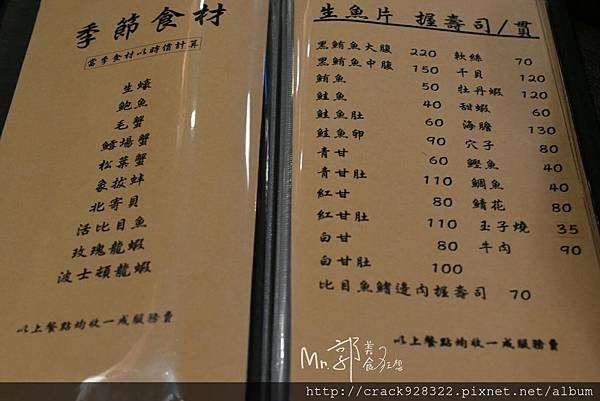 季節食材
當季食材以時價計算
生蠔
鮑魚
毛蟹
鱈場蟹
松葉蟹
象拔蚌
北寄貝
活比目魚
玫瑰龍蝦
波士頓龍蝦
以上餐點均收一成服務費
生魚片 握壽司/貫
黑鮪魚大腹 220
黑鮪魚中腹 150
鮪魚 50
鮭魚 40
鮭魚肚 60
鮭魚卵 90
青甘 60
青甘肚 110
紅甘 80
紅甘肚 110
白甘 80
白甘肚 100
比目魚鰭邊肉握壽司 70
軟絲 70
干貝 120
牡丹蝦 120
甜蝦 60
海膽 130
穴子 80
鰹魚 40
鯛魚 40
鯖花 80
玉子燒 35
牛肉 90
以上餐點均收一成服務費
Mr.郭 美食
http://crack928322.pixnet.net/album